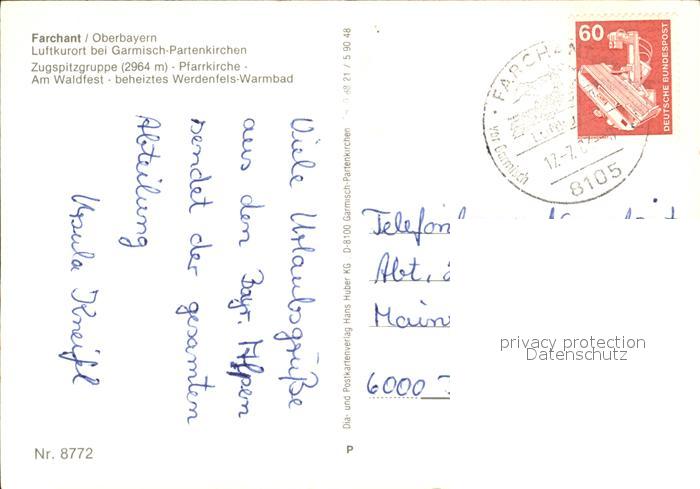 Farchant / Oberbayern
Luftkurort bei Garmisch-Partenkirchen
Zugspitzgruppe (2964 m) - Pfarrkirche -
Am Waldfest - beheiztes Werdenfels-Warmbad
Viele Urlaubsgrüße
aus den Bayr. Alpen
sendet der gesamten
Abteilung
Ursula Kneifel
Nr. 8772
Dia- und Postkartenverlag Hans Huber KG D-8100 Garmisch-Partenkirchen
21 / 5 90 48
P
60
DEUTSCHE BUNDESPOST
FARCHANT
vor Garmisch
8105
Telefon
Abt.
Main
6000
privacy protection
Datenschutz